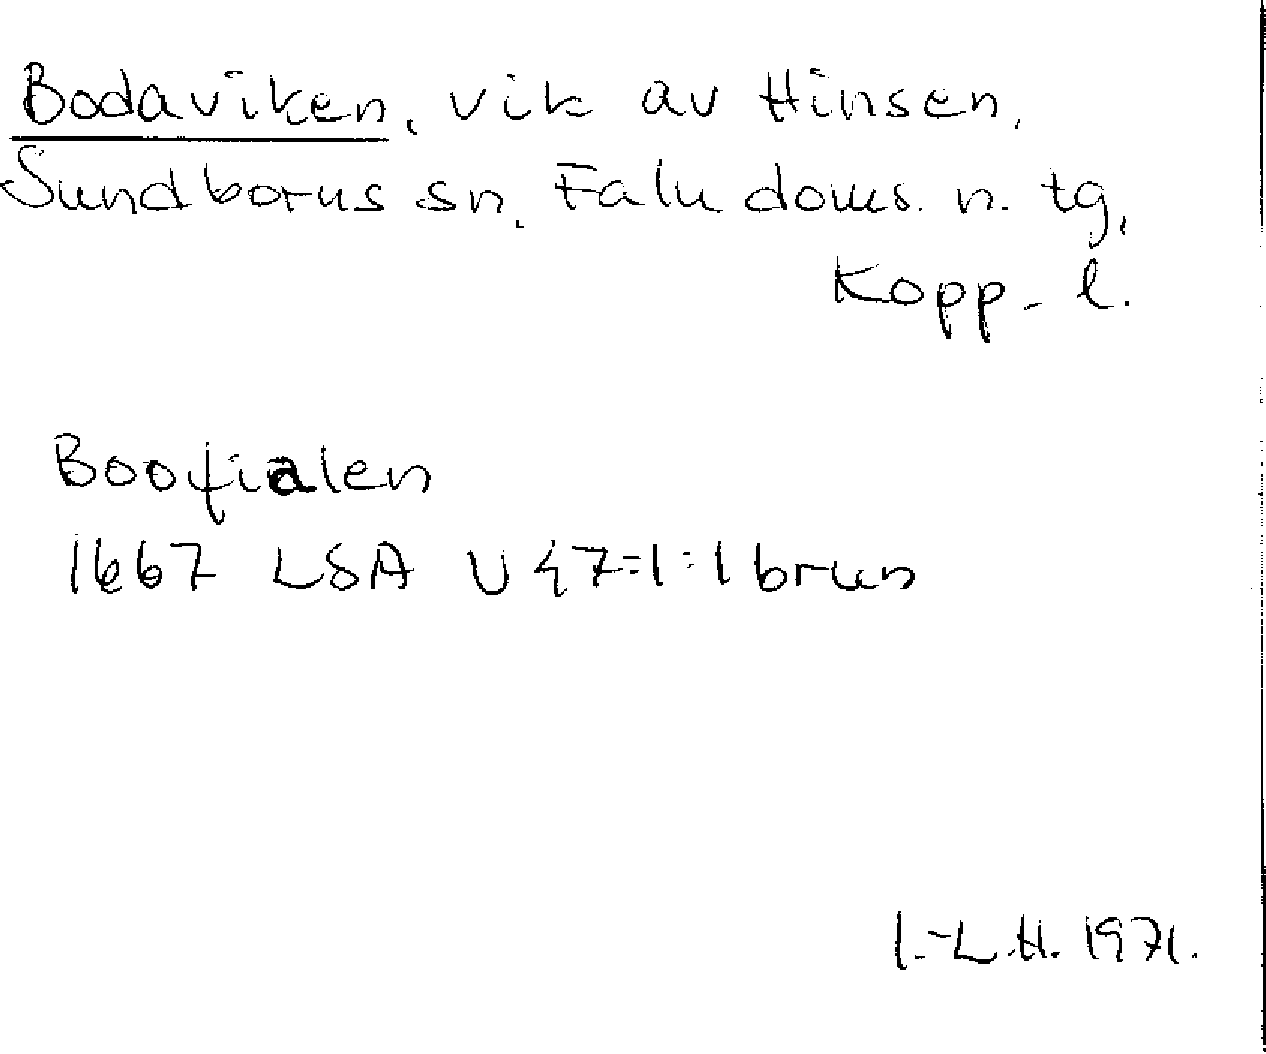 Bodaviken, vik av Hinsen,
Sundborns sn, Falu doms. n. tg,
Kopp. l.
Boofialen
1667 LSA U 47=1:1 brun
I.-L.H. 1971.